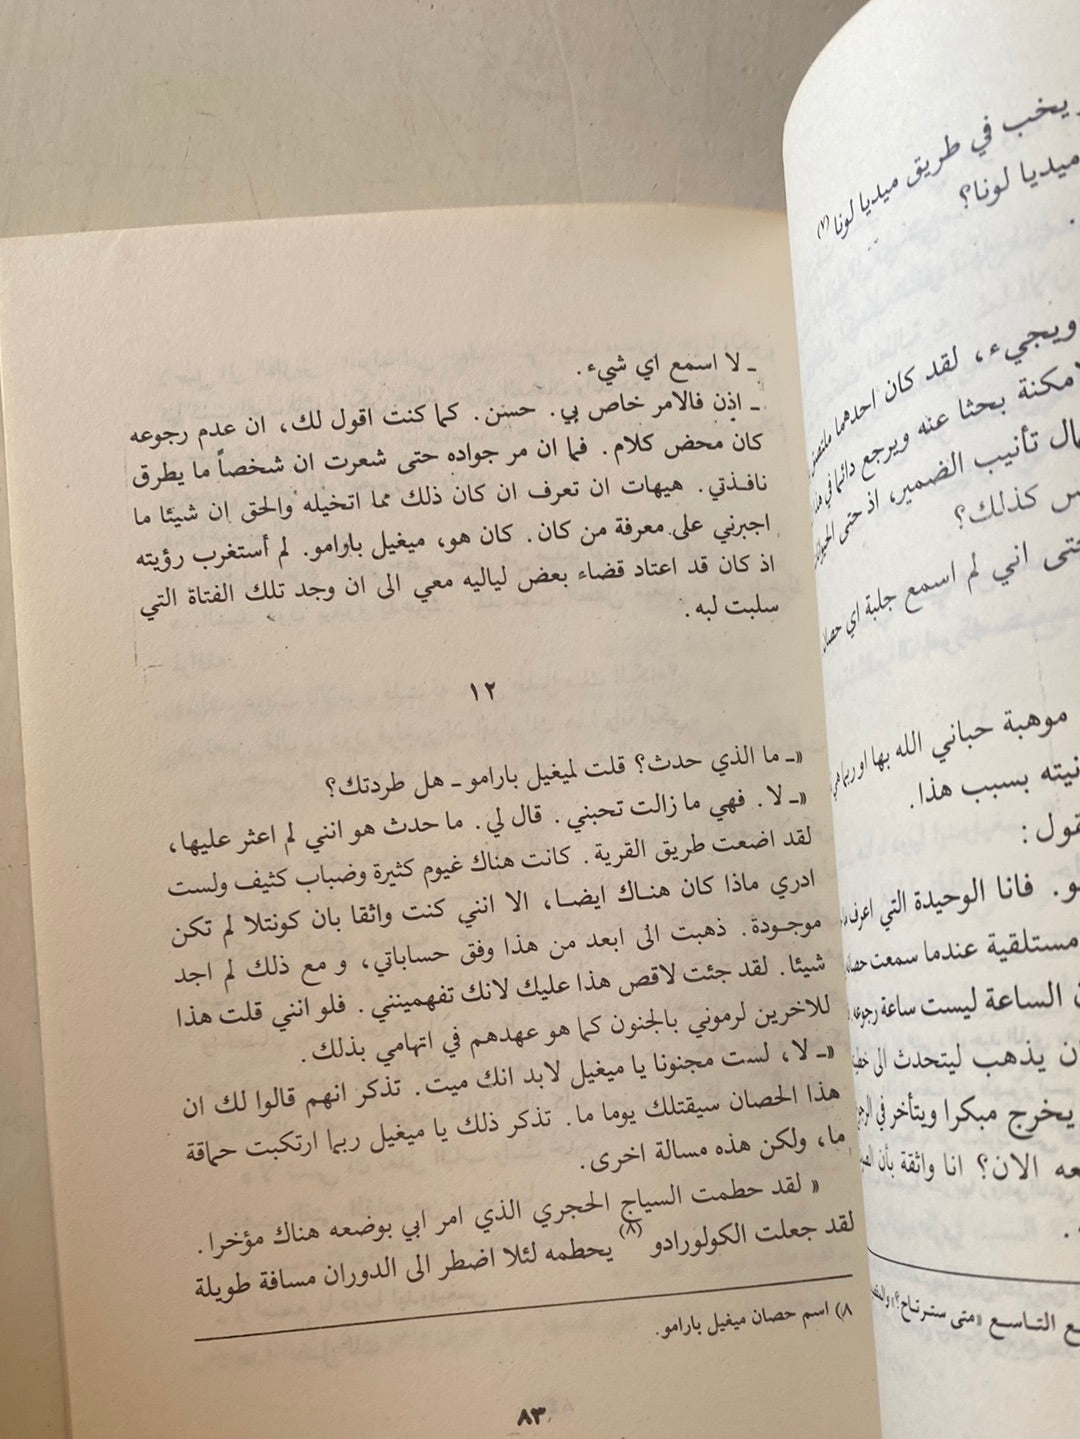 يخب في طريق ميديا لونا (٧)
ميديا لونا؟
ويجيء، لقد كان احدهما ملتصقا
لامكنة بحثا عنه ويرجع دائما في
تأنيب الضمير، اذ حتى
س كذلك؟
حتى اني لم اسمع جلبة اي حصان
موهبة حباني الله بها او ربما هي
نيته بسبب هذا.
قول :
و. فانا الوحيدة التي اعرف
مستلقية عندما سمعت حصانه
الساعة ليست ساعة رجوعه
ان يذهب ليتحدث الى
يخرج مبكرا ويتأخر في
عه الان؟ انا واثقة بأن
ـع التـاسـع «متى ستـرتـاح؟»
ـ لا اسمع اي شيء.
ـ اذن فالامر خاص بي. حسن. كما كنت اقول لك، ان عدم رجوعه
كان محض كلام. فما ان مر جواده حتى شعرت ان شخصاً ما يطرق
نافـذتي. هيهات ان تعرف ان كان ذلك مما اتخيله والحق ان شيئا ما
اجبرني على معرفة من كان. كان هو، ميغيل بارامو. لم أستغرب رؤيته
اذ كان قد اعتاد قضاء بعض لياليه معي الى ان وجد تلك الفتاة التي
سلبت لبه.
١٢
«ـ ما الذي حدث؟ قلت لميغيل بارامو ـ هل طردتك؟
«ـ لا. فهي ما زالت تحبني. قال لي. ما حدث هو انني لم اعثر عليها،
لقد اضعت طريق القرية. كانت هناك غيوم كثيرة وضباب كثيف ولست
ادري ماذا كان هنـاك ايضـا، الا انني كنت واثقا بان كونتلا لم تكن
موجـودة. ذهبت الى ابعد من هذا وفق حساباتي، و مع ذلك لم اجد
شيئا. لقد جئت لاقص هذا عليك لانك تفهمينني. فلو انني قلت هذا
للاخرين لرموني بالجنون كما هو عهدهم في اتهامي بذلك.
«ـ لا، لست مجنونا يا ميغيل لابد انك ميت. تذكر انهم قالوا لك ان
هذا الحصان سيقتلك يوما ما. تذكر ذلك يا ميغيل ربما ارتكبت حماقة
ما، ولكن هذه مسالة اخرى.
« لقد حطمت السياج الحجري الذي امر ابي بوضعه هناك مؤخرا.
لقد جعلت الكولورادو (٨) يحطمه لئلا اضطر الى الدوران مسافة طويلة
٨) اسم حصان ميغيل بارامو.
٨٣